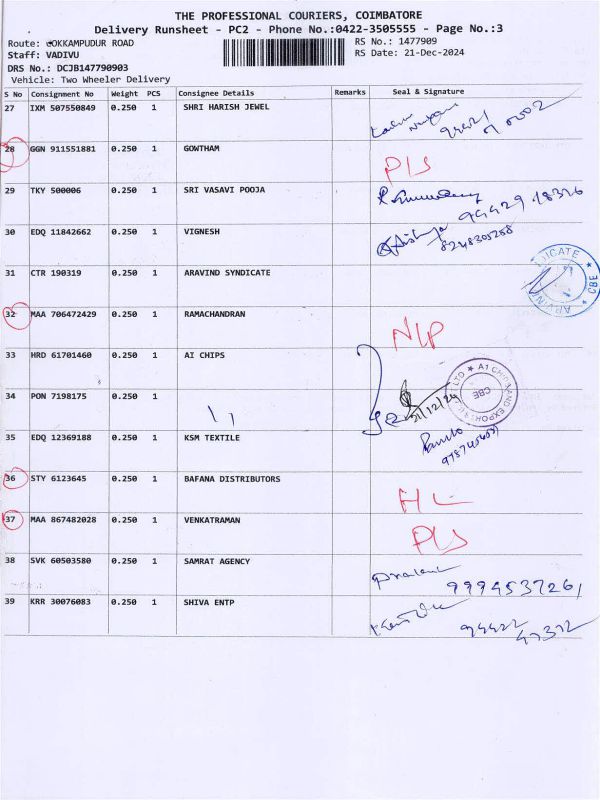 THE PROFESSIONAL COURIERS, COIMBATORE
Delivery Runsheet - PC2 - Phone No.:0422-3505555 - Page No.:3
Route: GOKKAMPUDUR ROAD RS No.: 1477909
Staff: VADIVU RS Date: 21-Dec-2024
DRS No.: DCJB147790903
Vehicle: Two Wheeler Delivery
S No Consignment No Weight PCS Consignee Details Remarks Seal & Signature
27 IXM 507550849 0.250 1 SHRI HARISH JEWEL
28 GGN 911551881 0.250 1 GOWTHAM PLS
29 TKY 500006 0.250 1 SRI VASAVI POOJA 99429 18326
30 EDQ 11842662 0.250 1 VIGNESH 8248305268
31 CTR 190319 0.250 1 ARAVIND SYNDICATE
32 MAA 706472429 0.250 1 RAMACHANDRAN N/P
33 HRD 61701460 0.250 1 AI CHIPS
34 PON 7198175 0.250 1 21/12/24
35 EDQ 12369188 0.250 1 KSM TEXTILE
36 STY 6123645 0.250 1 BAFANA DISTRIBUTORS HL
37 MAA 867482028 0.250 1 VENKATRAMAN PLS
38 SVK 60503580 0.250 1 SAMRAT AGENCY 9994537261
39 KRR 30076083 0.250 1 SHIVA ENTP 99422 47372